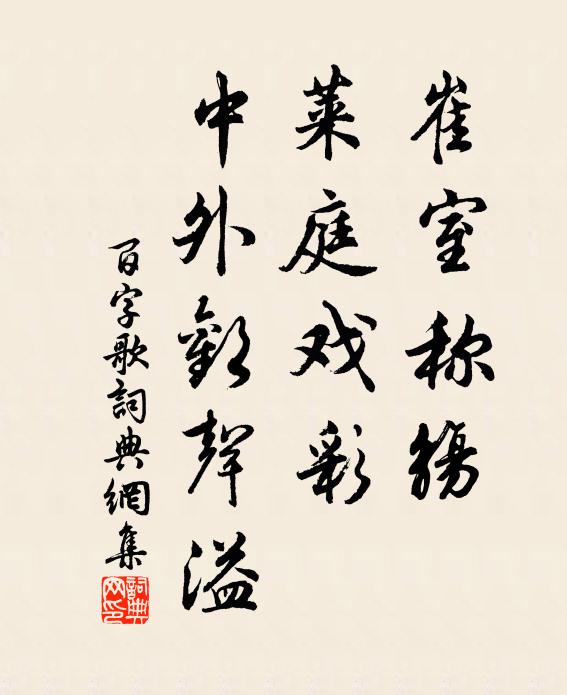 崔室称觞
莱庭戏彩
中外歡聲溢
百字歌詞典網集
詞典網印